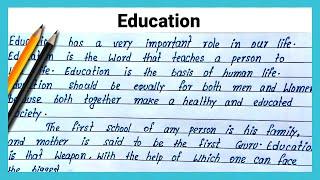 Education
Education has a very important role in our life.
is the word that teaches a person to
Education is the basis of human life.
should be equally for both men and women
both together make a healthy and educated
society.
The first school of any person is his family,
and mother is said to be the first Guru. Education
is that weapon, with the help of which one can face
the biggest